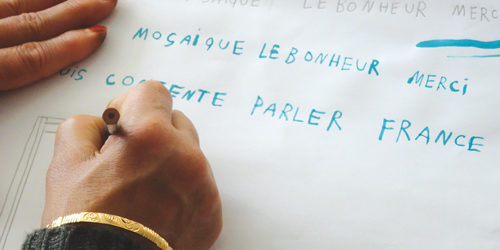 LE BONHEUR MERC
MOSAiQUE LE BONHEUR MERCi
UIS CONTENTE PARLER FRANCE